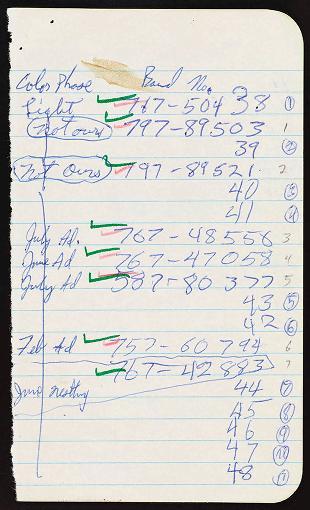 Color Phase Band No.
Light 767-50438 ①
Not ours 797-89503 1
39 ②
Not Ours 797-89521 2
40 ③
41 ④
July Ad. 767-48556 3
June Ad 767-47058 4
July Ad 587-80377 5
43 ⑤
42 ⑥
Feb Ad 757-60794 6
767-42883 7
Juv. nestling 44 ⑦
45 ⑧
46 ⑨
47 ⑩
48 ⑪